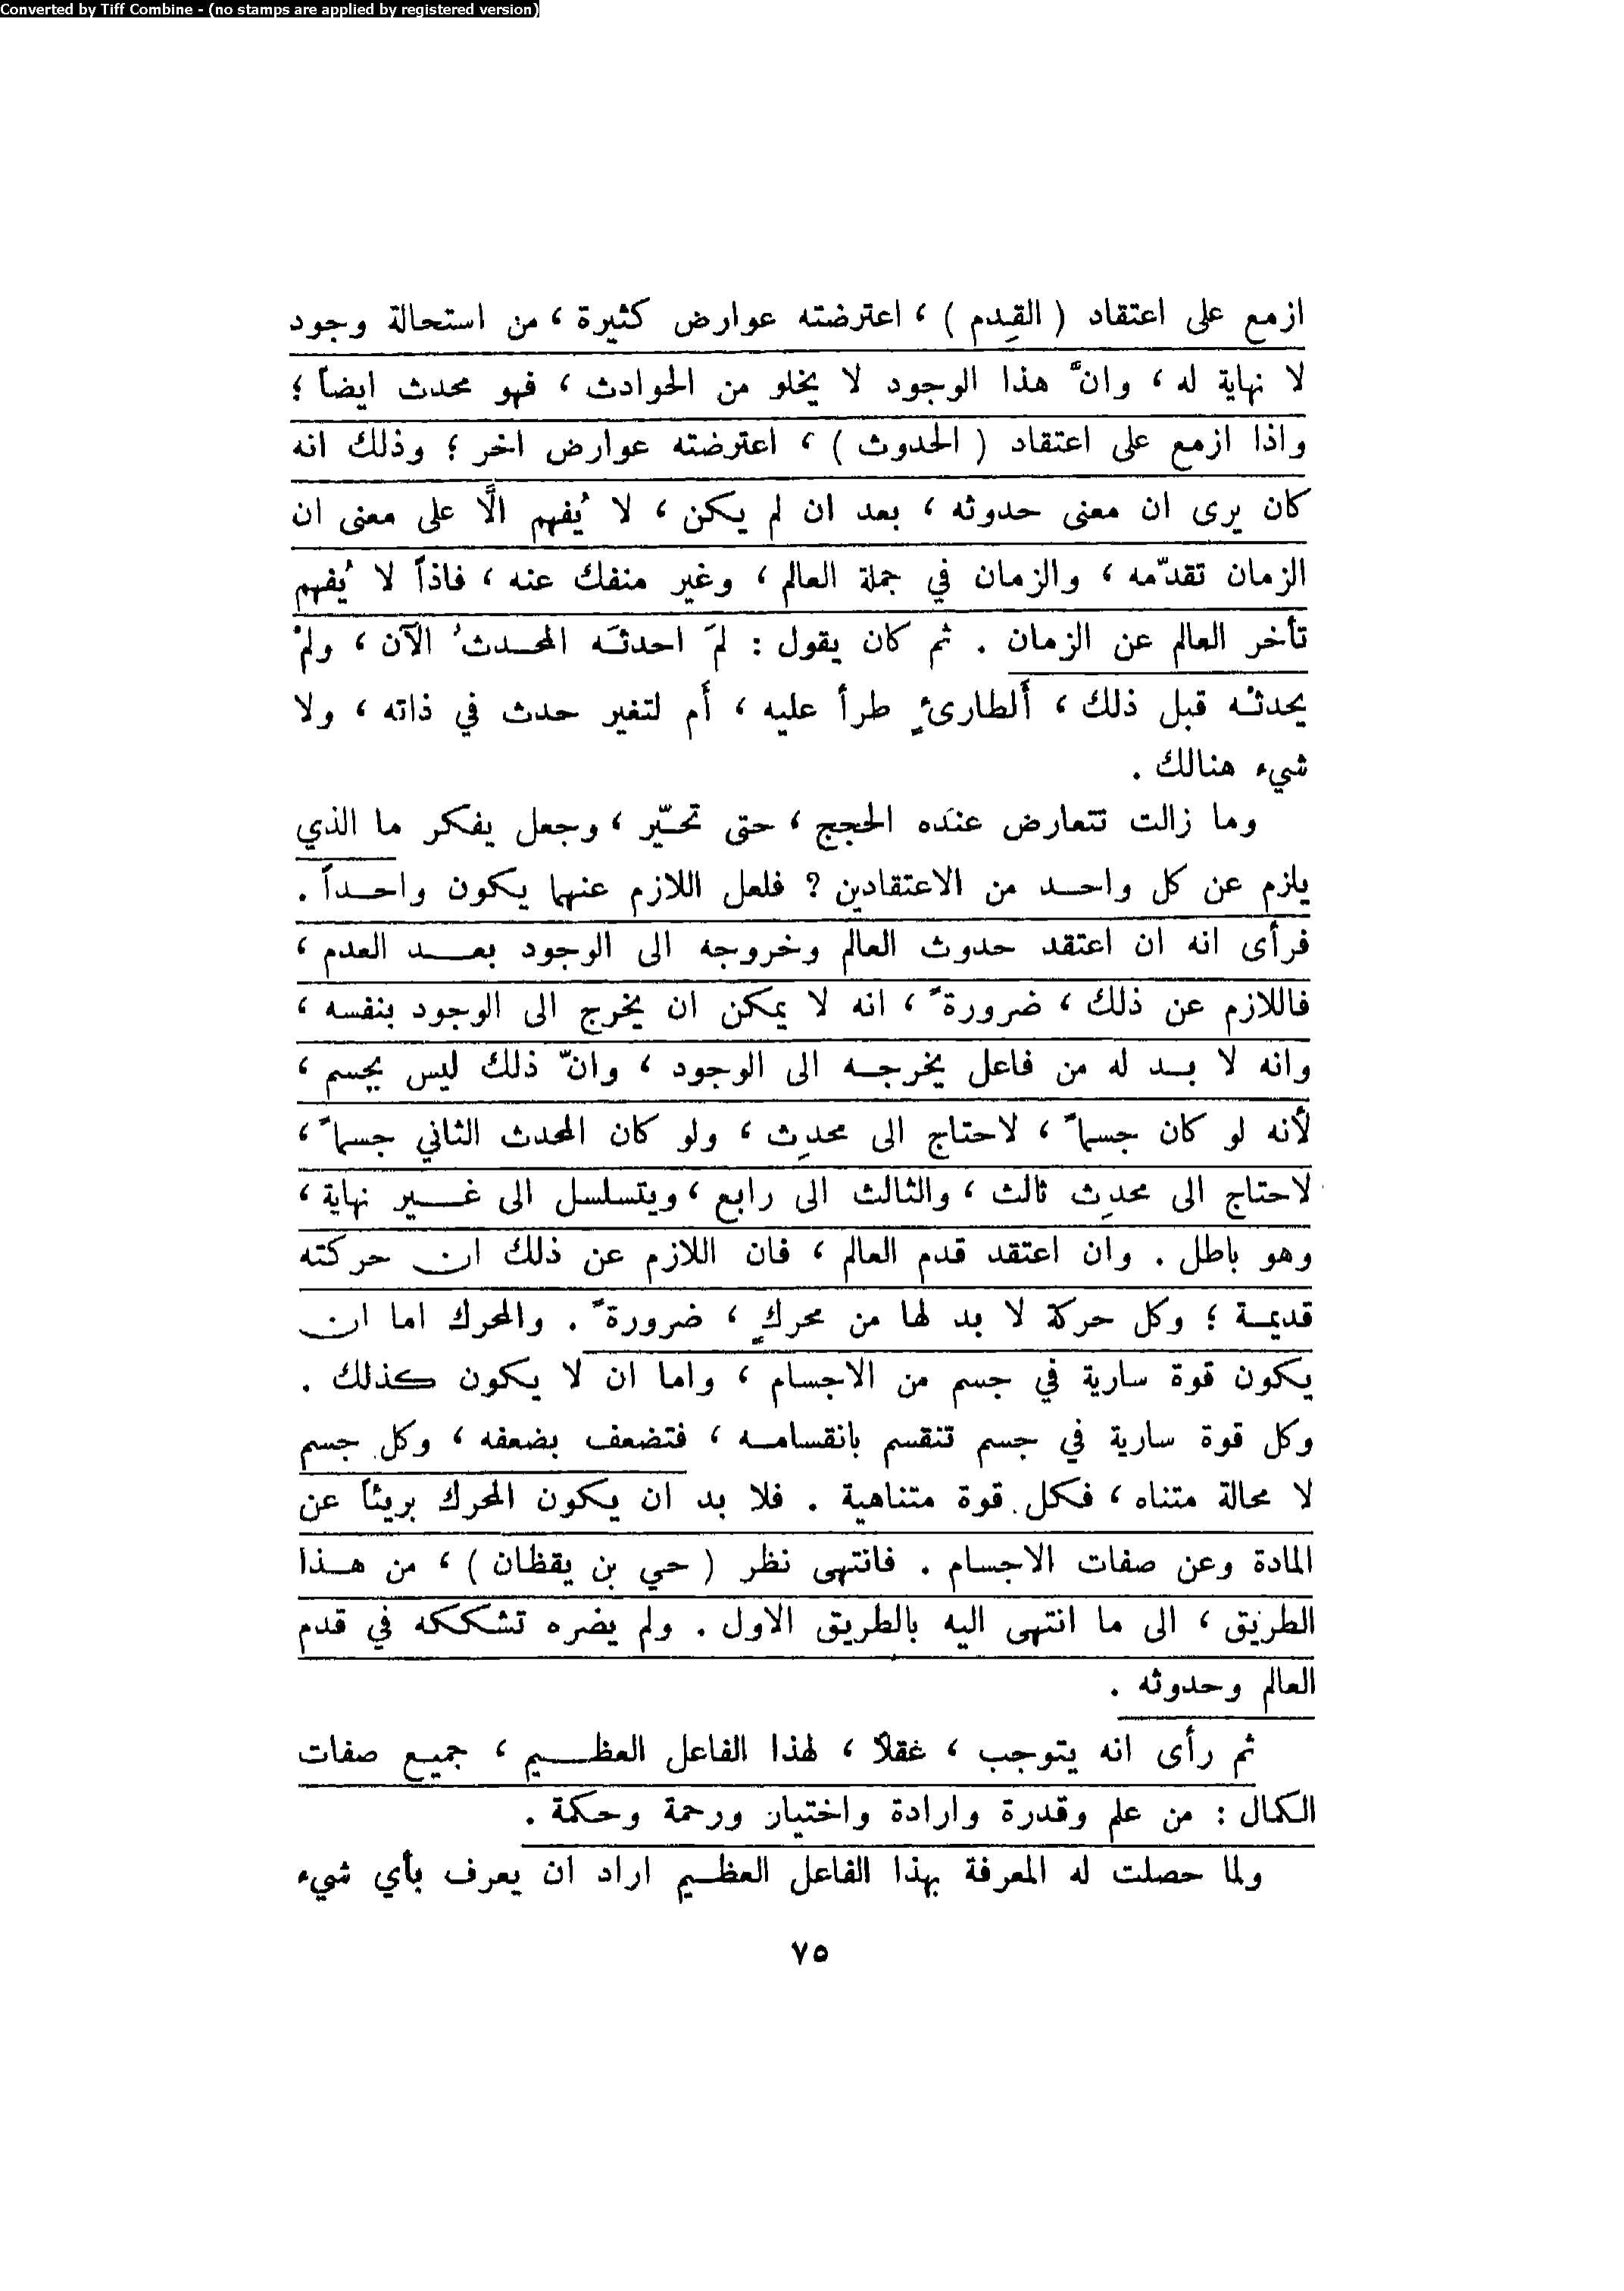 Converted by Tiff Combine - (no stamps are applied by registered version)
ازمع على اعتقاد ( القِدم ) ، اعترضته عوارض كثيرة ، من استحالة وجود
لا نهاية له ، وانَّ هذا الوجود لا يخلو من الحوادث ، فهو محدث ايضاً ؛
واذا ازمع على اعتقاد ( الحدوث ) ، اعترضته عوارض اخر ؛ وذلك انه
كان يرى ان معنى حدوثه ، بعد ان لم يكن ، لا يُفهم الَّا على معنى ان
الزمان تقدّمه ، والزمان في جملة العالم ، وغير منفك عنه ، فاذاً لا يُفهم
تأخر العالم عن الزمان . ثم كان يقول : لمَ احدثَه المحدثُ الآن ، ولمْ
يحدثْه قبل ذلك ، أَلطارئٍ طرأ عليه ، أَم لتغير حدث في ذاته ، ولا
شيء هنالك .
وما زالت تتعارض عندَه الحجج ، حتى تحيّر ، وجعل يفكر ما الذي
يلزم عن كل واحد من الاعتقادين ؟ فلعل اللازم عنهما يكون واحداً .
فرأى انه ان اعتقد حدوث العالم وخروجه الى الوجود بعد العدم ،
فاللازم عن ذلك ، ضرورةً ، انه لا يمكن ان يخرج الى الوجود بنفسه ،
وانه لا بد له من فاعل يخرجه الى الوجود ، وانّ ذلك ليس بجسم ،
لأنه لو كان جسماً ، لاحتاج الى محدِث ، ولو كان المحدث الثاني جسماً ،
لاحتاج الى محدِث ثالث ، والثالث الى رابع ، ويتسلسل الى غير نهاية ،
وهو باطل . وان اعتقد قدم العالم ، فان اللازم عن ذلك ان حركته
قديمة ؛ وكل حركة لا بد لها من محركٍ ، ضرورةً . والمحرك اما ان
يكون قوة سارية في جسم من الاجسام ، واما ان لا يكون كذلك .
وكل قوة سارية في جسم تنقسم بانقسامه ، فتضعف بضعفه ، وكل جسم
لا محالة متناه ، فكل قوة متناهية . فلا بد ان يكون المحرك بريئاً عن
المادة وعن صفات الاجسام . فانتهى نظر ( حي بن يقظان ) ، من هذا
الطريق ، الى ما انتهى اليه بالطريق الاول . ولم يضره تشككه في قدم
العالم وحدوثه .
ثم رأى انه يتوجب ، عقلاً ، لهذا الفاعل العظيم ، جميع صفات
الكمال : من علم وقدرة وارادة واختيار ورحمة وحكمة .
ولما حصلت له المعرفة بهذا الفاعل العظيم اراد ان يعرف بأي شيء
٧٥